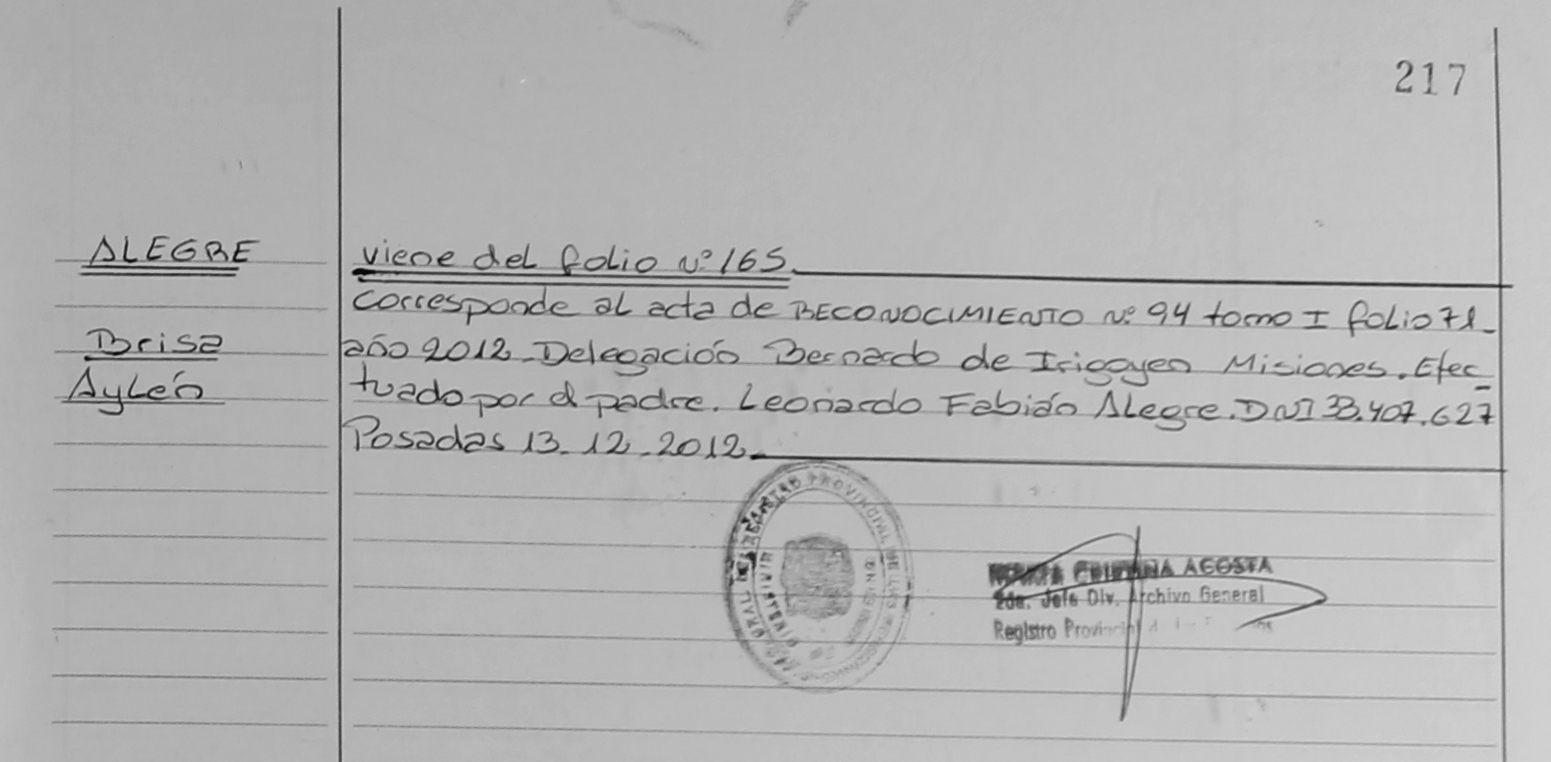 217
ALEGRE
Brisa
Aylén
viene del folio nº 165
corresponde al acta de RECONOCIMIENTO nº 94 tomo I folio 71-
año 2012-Delegación Bernardo de Irigoyen Misiones. Efec_
tuado por el padre. Leonardo Fabián Alegre. DNI 33.407.627
Posadas 13-12-2012-
PROVINCIAL DE LAS
ACOSTA
2da. Jefe Div. Archivo General
Registro Provincial